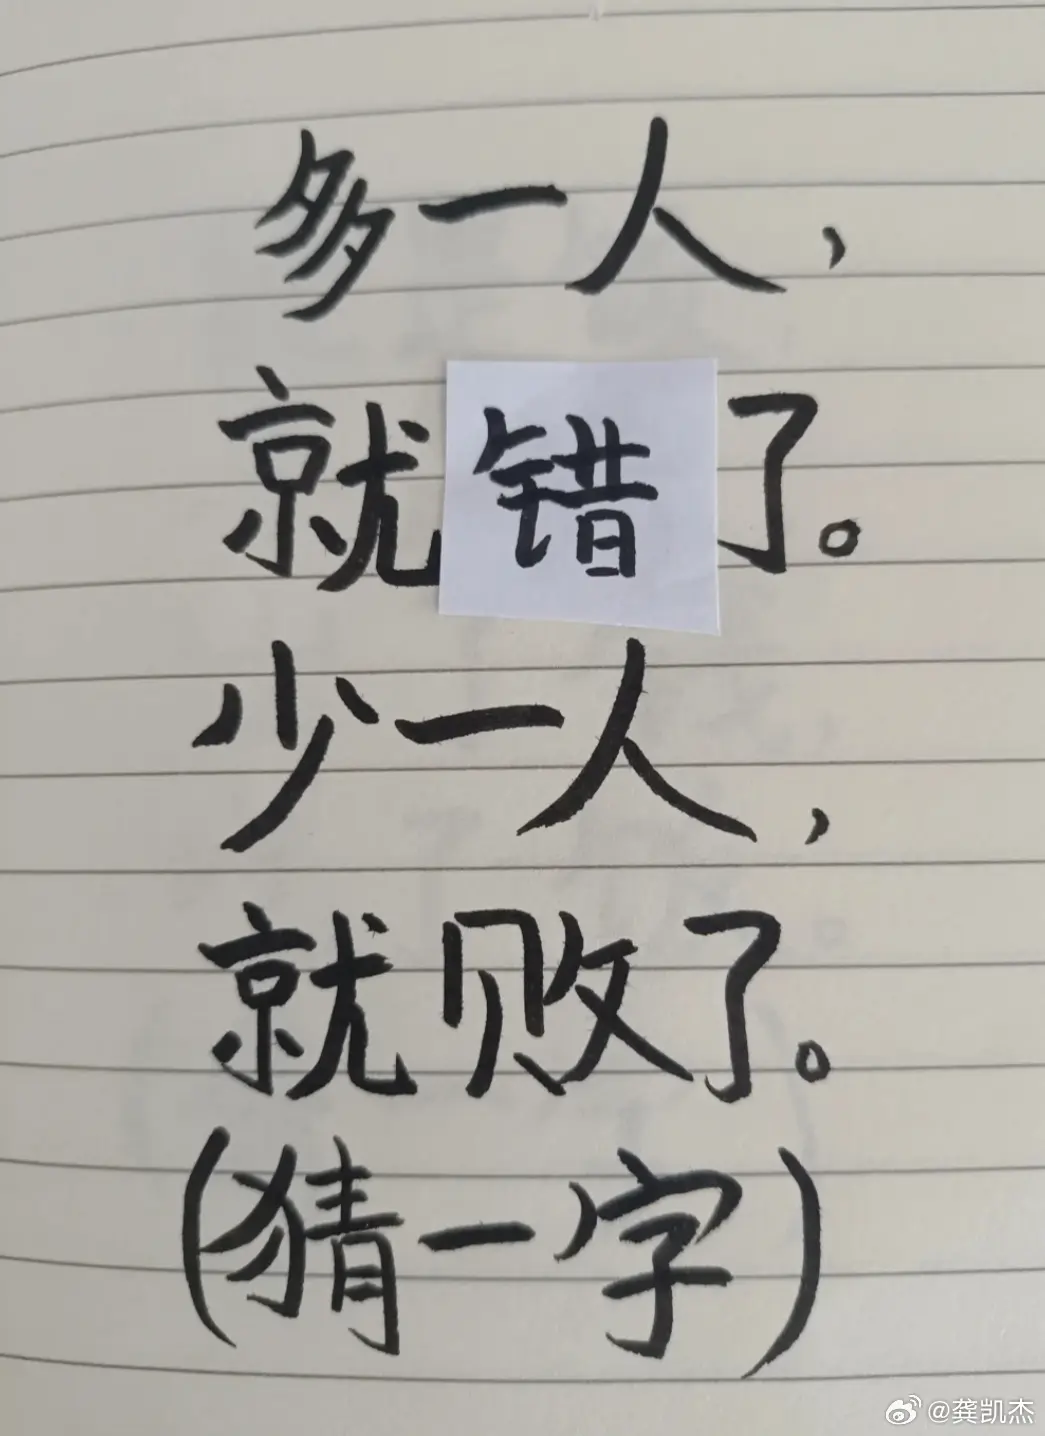 多一人，
就错了。
少一人，
就败了。
(猜一字)
@龚凯杰